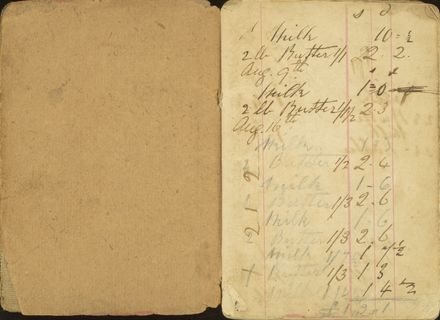 s d
Milk 10-½
2 lb Butter 1/1 2. 2.
Aug. 9th s d
Milk 1=0
2 lb Butter 1/1½ 2-3
Aug. 16th
Milk
2 Butter 1/2 2-4
Milk 1-6
Butter 1/3 2.6
Milk 1-6
2 Butter 1/3 2.6
Milk 1
Butter 1/3 1 3
Milk 1 4½